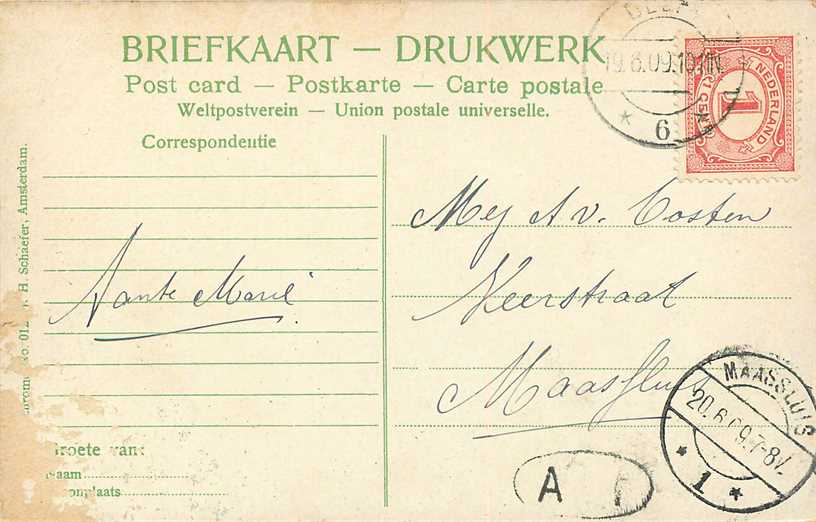 BRIEFKAART — DRUKWERK
Post card — Postkarte — Carte postale
Weltpostverein — Union postale universelle.
Correspondentie
H. Schaefer, Amsterdam.
Tante Marie
Groete van:
Naam
Woonplaats
19.6.09.10-11V
6
NEDERLAND
1
1 CENT
Mej A v. Oosten
Veerstraat
Maassluis
MAASSLUIS
20.6.09.7-8V.
1
A